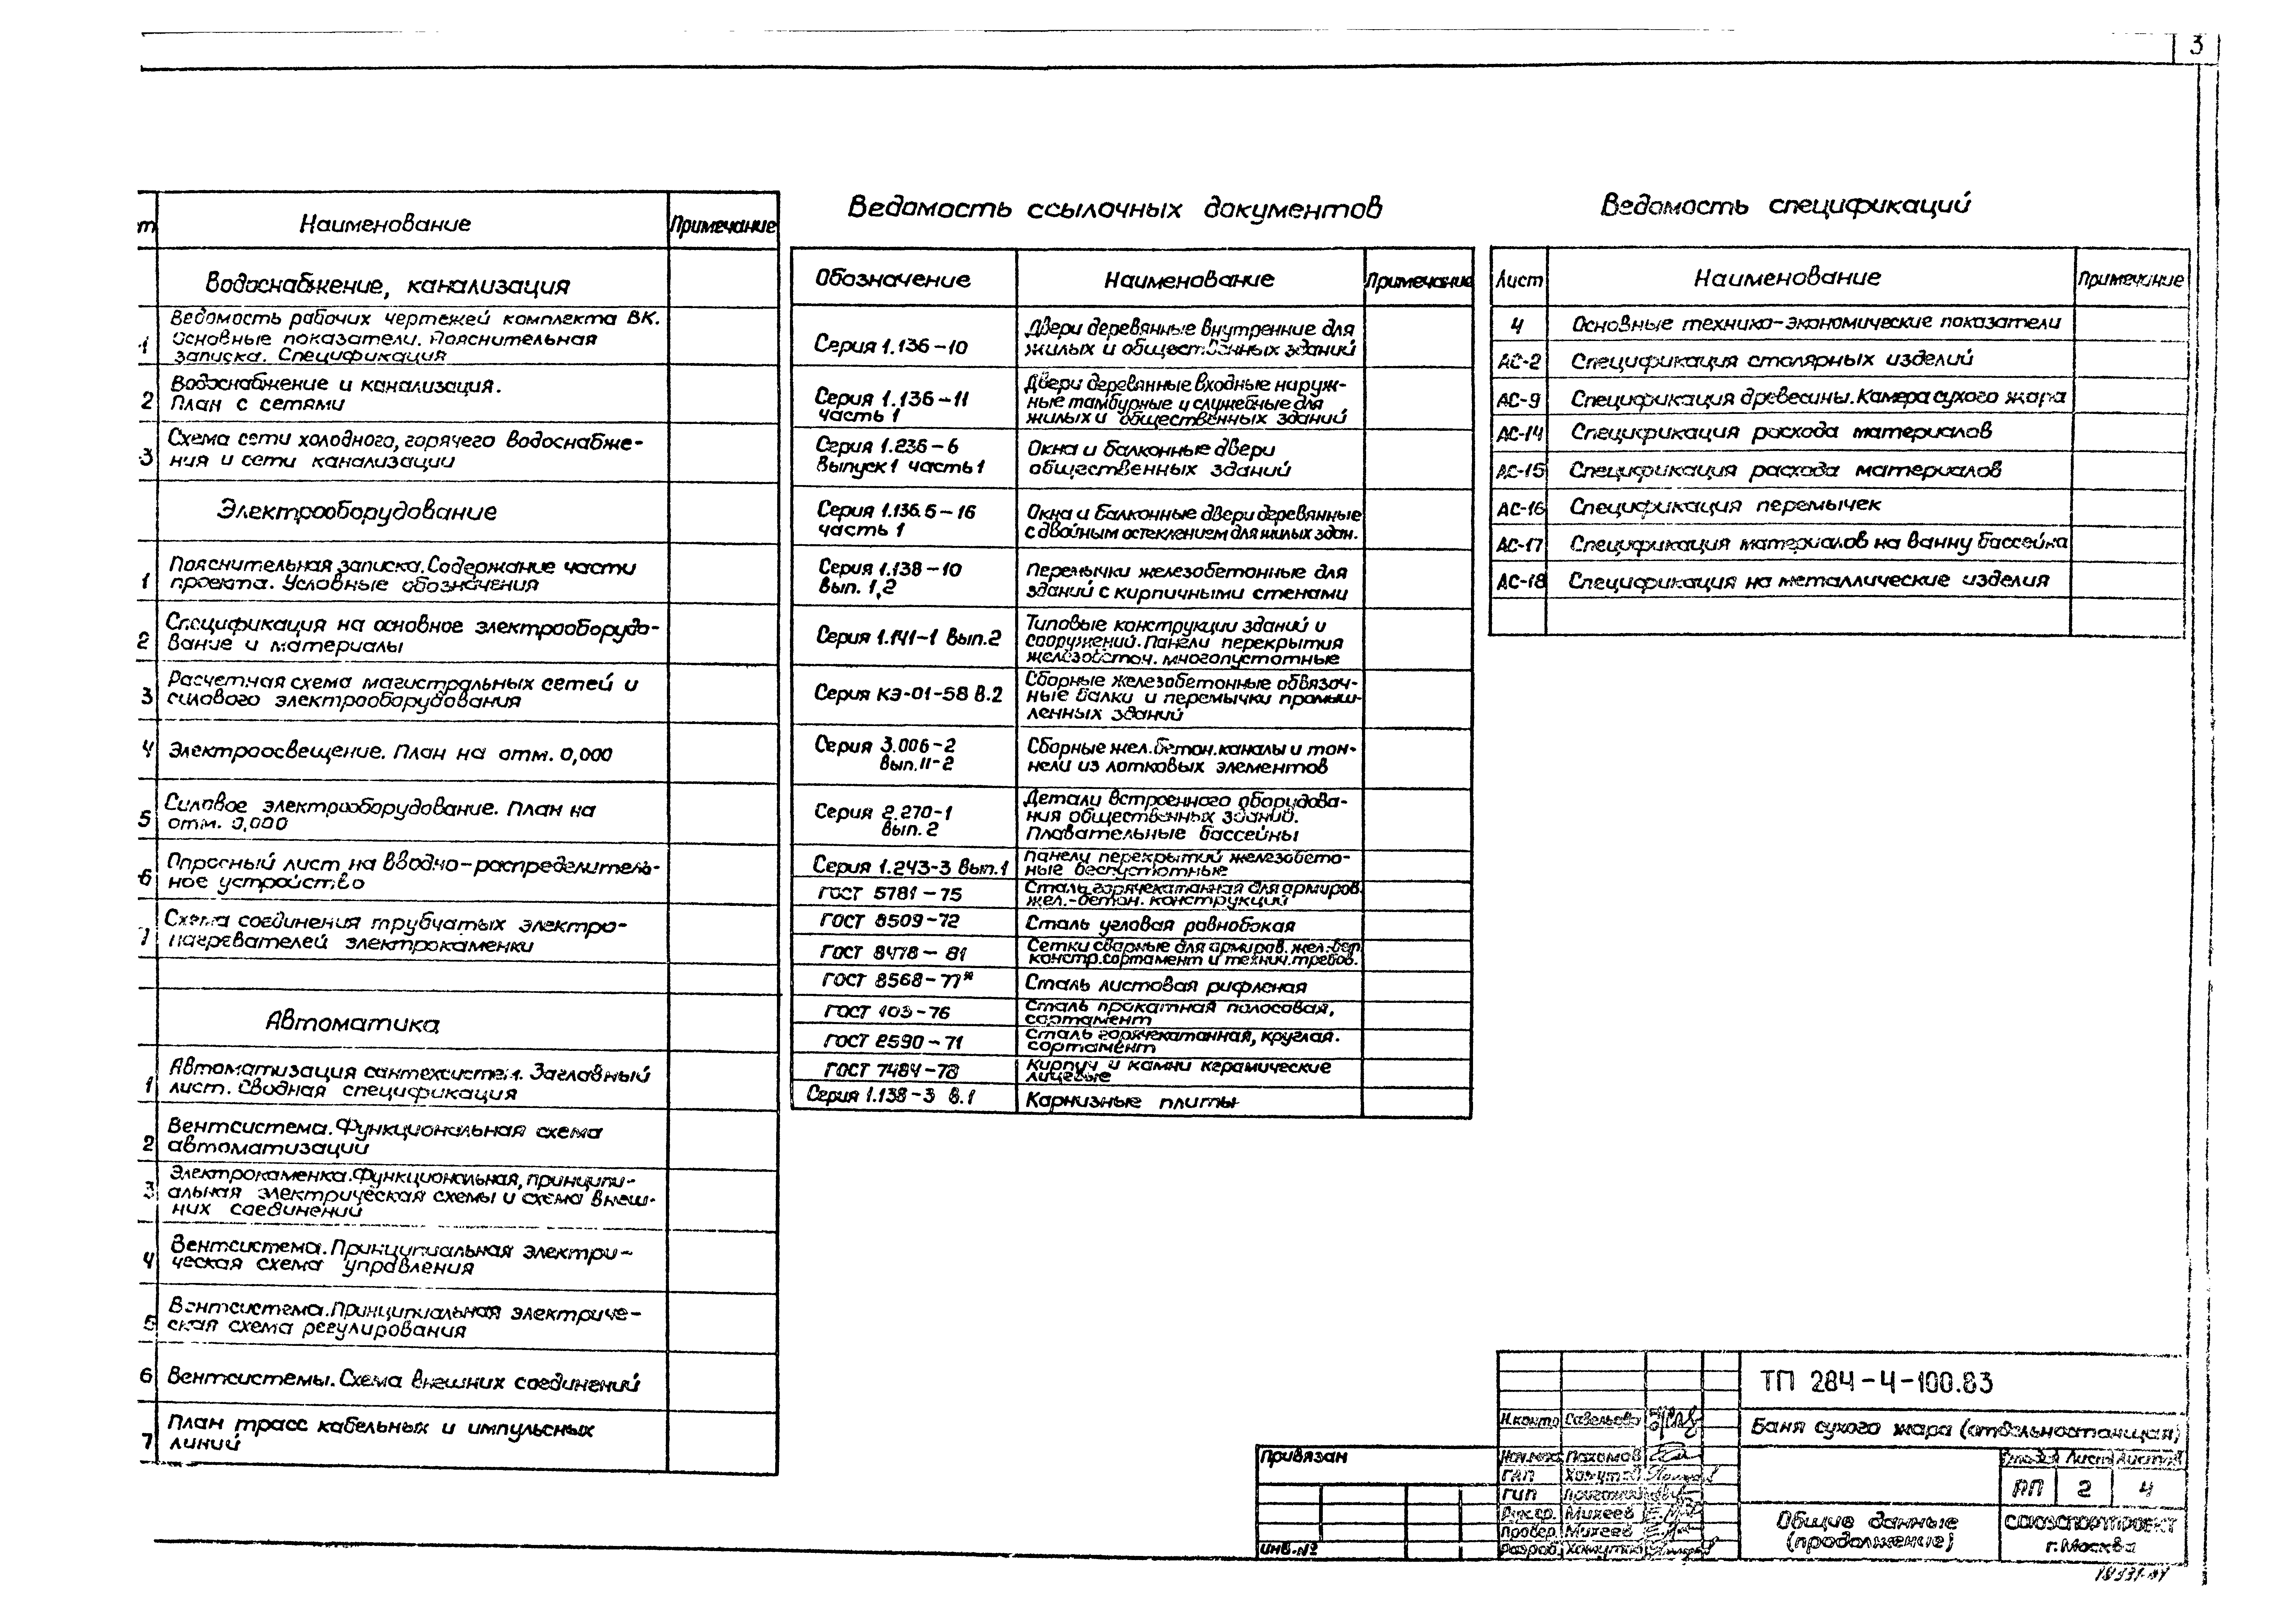 3
т Наименование Примечание
Водоснабжение, канализация
1 Ведомость рабочих чертежей комплекта ВК.
Основные показатели. Пояснительная
записка. Спецификация
2 Водоснабжение и канализация.
План с сетями
3 Схема сети холодного, горячего водоснабже-
ния и сети канализации
Электрооборудование
1 Пояснительная записка. Содержание части
проекта. Условные обозначения
2 Спецификация на основное электрооборудо-
вание и материалы
3 Расчетная схема магистральных сетей и
силового электрооборудования
4 Электроосвещение. План на отм. 0,000
5 Силовое электрооборудование. План на
отм. 0,000
6 Опросный лист на вводно-распределитель-
ное устройство
7 Схема соединения трубчатых электро-
нагревателей электрокаменки
Автоматика
1 Автоматизация сантехсистем. Заглавный
лист. Сводная спецификация
2 Вентсистема. Функциональная схема
автоматизации
3 Электрокаменка. Функциональная, принципи-
альная электрическая схемы и схема внеш-
них соединений
4 Вентсистема. Принципиальная электри-
ческая схема управления
5 Вентсистема. Принципиальная электриче-
ская схема регулирования
6 Вентсистемы. Схема внешних соединений
7 План трасс кабельных и импульсных
линий
Ведомость ссылочных документов
Обозначение Наименование Примечание
Серия 1.136-10 Двери деревянные внутренние для
жилых и общественных зданий
Серия 1.136-11 Двери деревянные входные наруж-
часть 1 ные тамбурные и служебные для
жилых и общественных зданий
Серия 1.236-6 Окна и балконные двери
Выпуск 1 часть 1 общественных зданий
Серия 1.136.5-16 Окна и балконные двери деревянные
часть 1 с двойным остеклением для жилых здан.
Серия 1.138-10 Перемычки железобетонные для
вып. 1,2 зданий с кирпичными стенами
Серия 1.141-1 вып.2 Типовые конструкции зданий и
сооружений. Панели перекрытия
железобетон. многопустотные
Серия КЭ-01-58 В.2 Сборные железобетонные обвязоч-
ные балки и перемычки промыш-
ленных зданий
Серия 3.006-2 Сборные жел. бетон. каналы и тон-
вып. II-2 нели из лотковых элементов
Серия 2.270-1 Детали встроенного оборудова-
вып. 2 ния общественных зданий.
Плавательные бассейны
Серия 1.243-3 Вып.1 Панели перекрытий железобето-
ные беспустотные
ГОСТ 5781-75 Сталь горячекатанная для армиров.
жел.-бетон. конструкций
ГОСТ 8509-72 Сталь угловая равнобокая
ГОСТ 8478-81 Сетки сварные для армиров. жел.-бет.
констр. сортамент и технич. требов.
ГОСТ 8568-77* Сталь листовая рифленая
ГОСТ 103-76 Сталь прокатная полосовая,
сортамент
ГОСТ 2590-71 Сталь горячекатанная, круглая.
сортамент
ГОСТ 7484-78 Кирпич и камни керамические
лицевые
Серия 1.138-3 В.1 Карнизные плиты
Ведомость спецификаций
Лист Наименование Примечание
4 Основные технико-экономические показатели
АС-2 Спецификация столярных изделий
АС-9 Спецификация древесины. Камера сухого жара
АС-14 Спецификация расхода материалов
АС-15 Спецификация расхода материалов
АС-16 Спецификация перемычек
АС-17 Спецификация материалов на ванну бассейна
АС-18 Спецификация на металлические изделия
Привязан
инв.№
Н.контр Савельева
Пахомов
ГАП Хомутов
ГИП
Михеев
Провер. Михеев
Разраб. Хомутов
ТП 284-4-100.83
Баня сухого жара (отдельностоящая)
Стадия Лист Листов
РП 2 4
Общие данные
(продолжение)
СОЮЗСПОРТПРОЕКТ
г. Москва